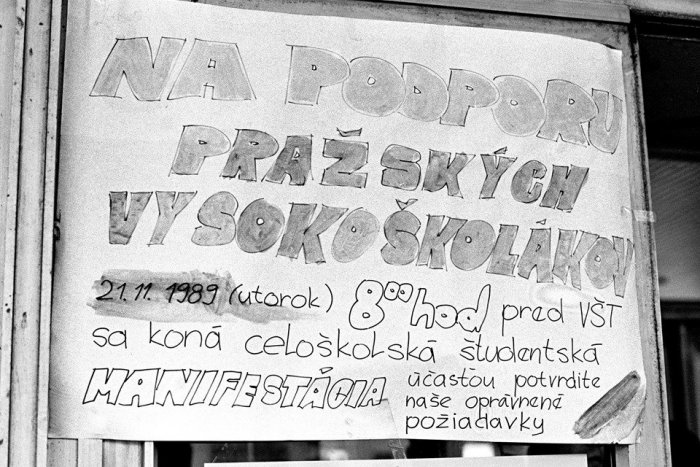 NA PODPORU
PRAŽSKÝCH
VYSOKOŠKOLÁKOV
21.11.1989 (utorok) 8⁰⁰ hod pred VŠT
sa koná celoškolská študentská
MANIFESTÁCIA účasťou potvrdíte
naše oprávnené
požiadavky